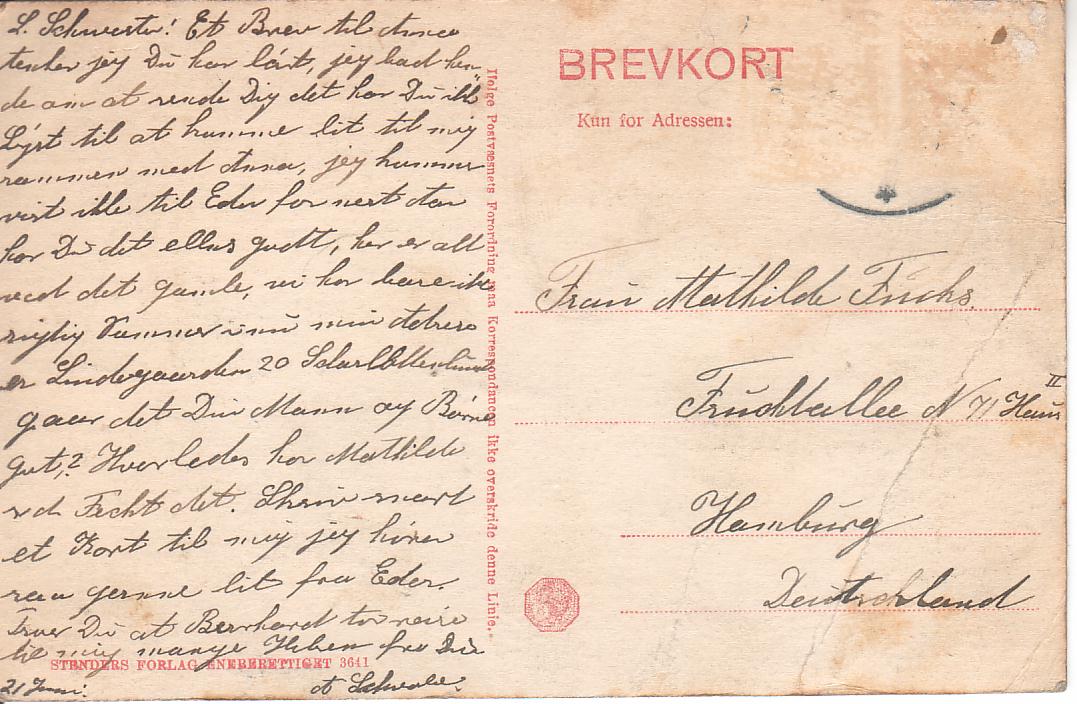 L. Schwester! Et Brev til Anna
tenker jeg Du har låst, jeg bad hen
de om at sende Dig det har Du ikke
Lyst til at komme lit til mig
sammen med Anna, jeg kommer
vist ikke til Eder for nest
har Du det ellers godt, her er alt
ved det gamle, vi har bare ikke
rigtig Sommer
er Lindegaarden 20
gaar det Din Mann og Børne
gut,? Hvorledes har Mathilde
det. Skriv snart
et Kort til mig jeg hører
saa gerne lit fra Eder.
Troer Du at Bernhard
til mig mange fra Din
21 Juni.
BREVKORT
Kun for Adressen:
Ifølge Postvæsnets Forordning maa Korrespondancen ikke overskride denne Linie.
Frau Mathilde Fuchs.
Fruchtallee N 71 Haus II
Hamburg
Deutschland
STENDERS FORLAG ENEBERETTIGET 3641